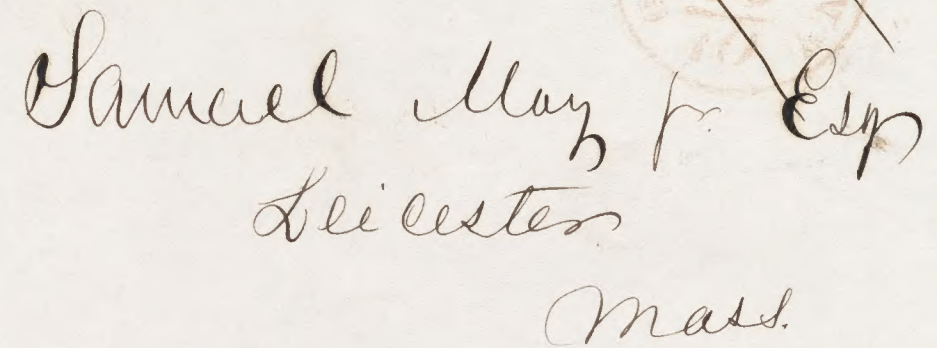 Samuel May jr. Esq
Leicester
Mass.